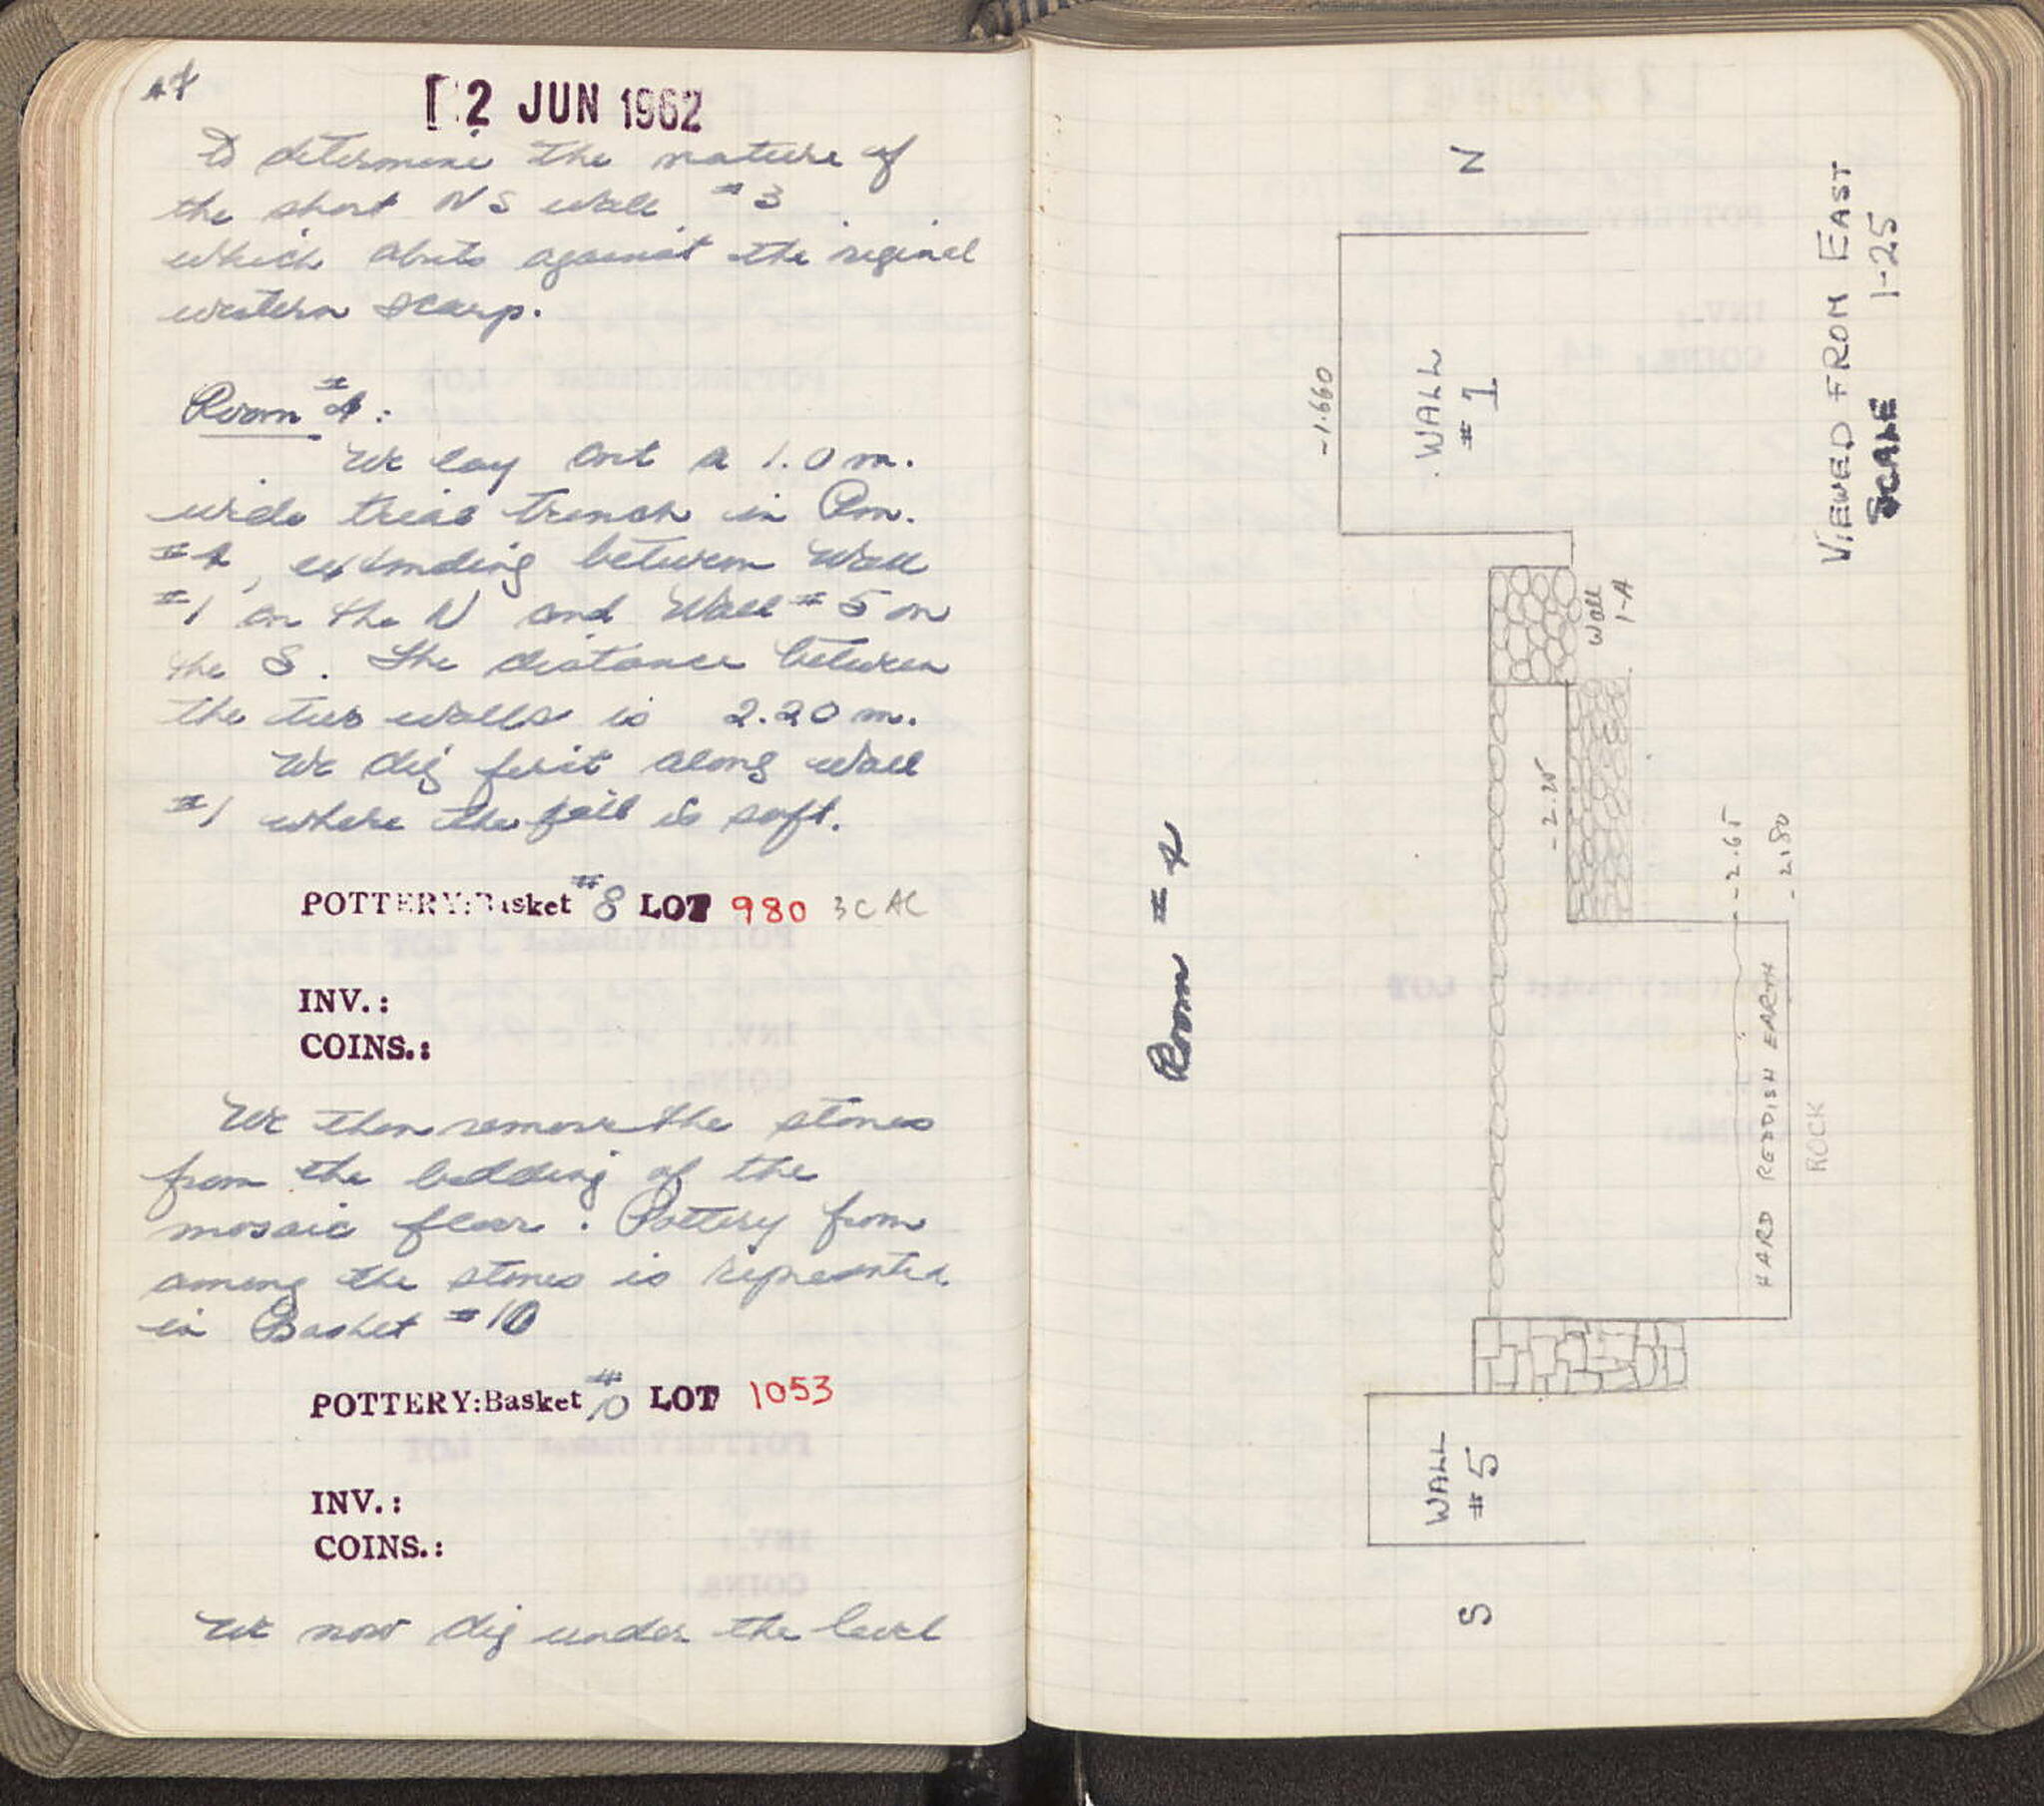 [ 2 JUN 1962
to determine the nature of
the short NS wall #3
which abuts against the original
western scarp.
Room #4:
We lay out a 1.0 m.
wide trial trench in Rm.
#4, extending between Wall
#1 on the N and Wall #5 on
the S. The distance between
the two walls is 2.20 m.
We dig first along wall
#1 where the fill is soft.
POTTERY:Basket #8 LOT 980 3C AC
INV.:
COINS.:
We then remove the stones
from the bedding of the
mosaic floor. Pottery from
among the stones is represented
in Basket #10
POTTERY:Basket #10 LOT 1053
INV.:
COINS.:
We now dig under the level
Room #4
N
-1.660
WALL
#1
Wall
1-A
-2.65
-2.80
HARD REDDISH EARTH
ROCK
WALL
#5
S
VIEWED FROM EAST
SCALE 1-25